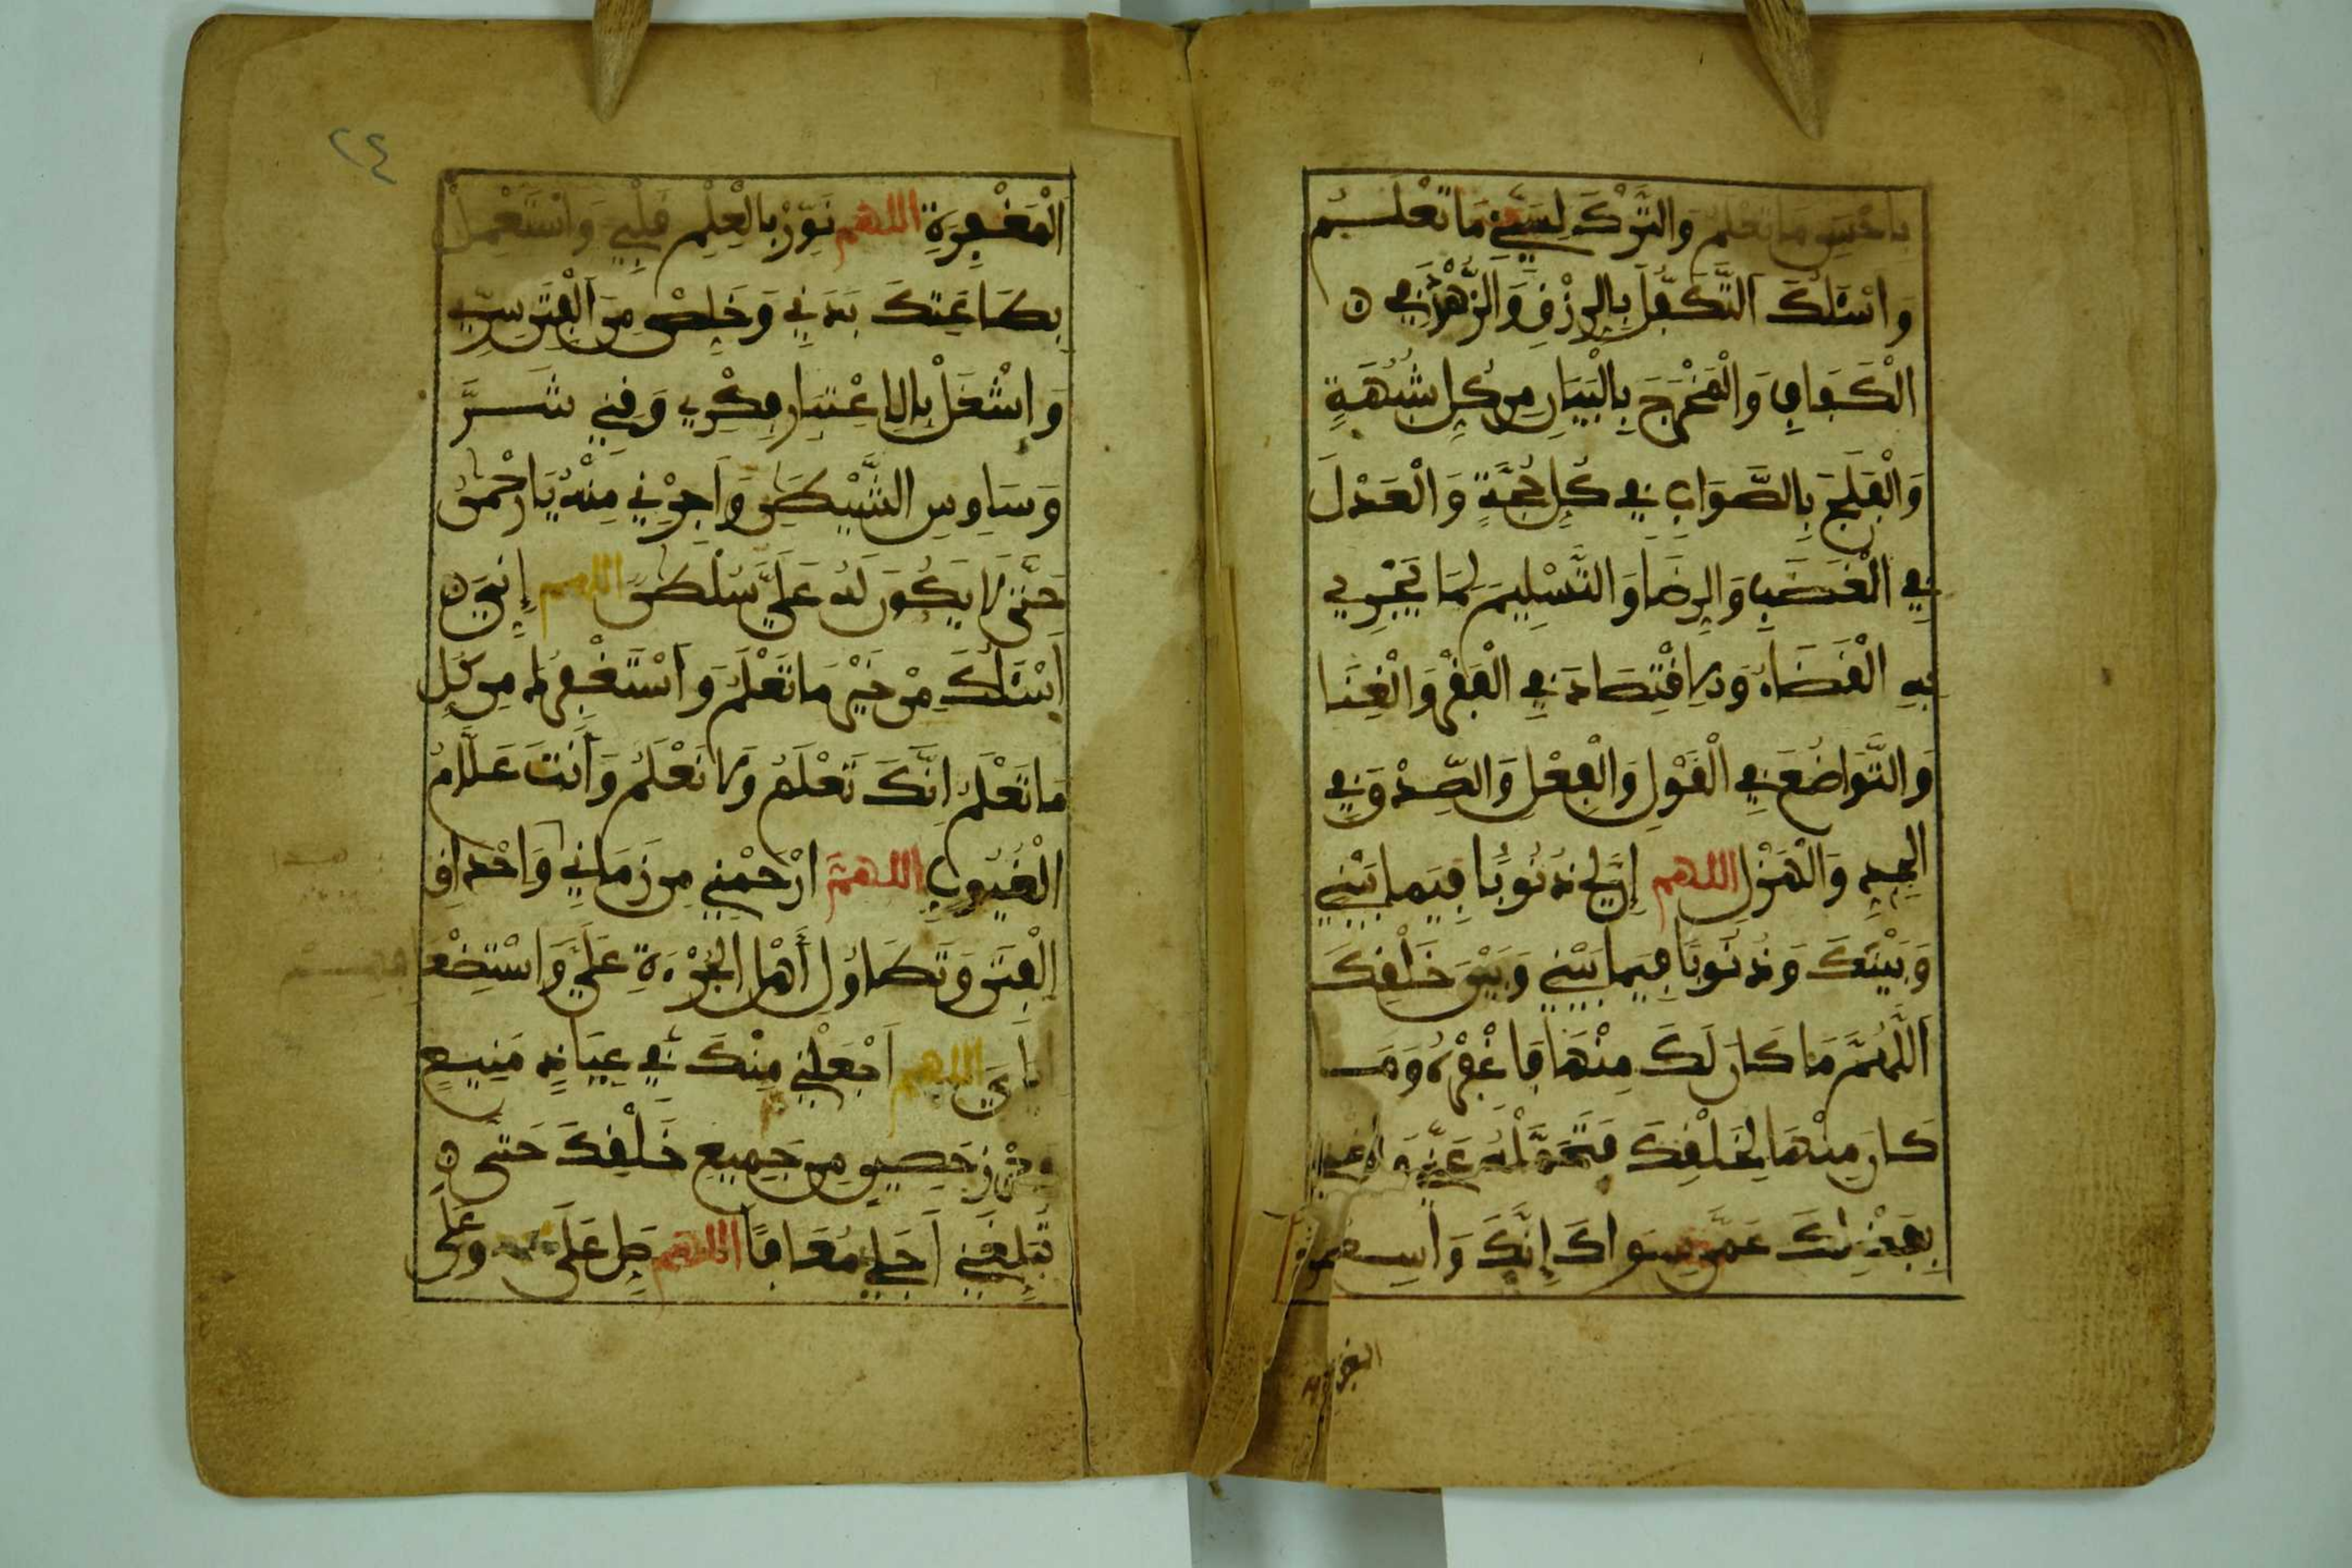 بأحسن ما تعلم والترك لسيئ ما تعلم
وَاسْئَلُكَ التَّكَفُّلَ بِالرِّزْقِ وَالزُّهْدَ فِي
الْكَفَافِ وَالْمَخْرَجَ بِالْبَيَانِ مِن كُلِّ شُبْهَةٍ
وَالْفَلَجَ بِالصَّوَابِ فِي كُلِّ حُجَّةٍ وَالْعَدْلَ
فِي الْغَضَبِ وَالرِّضَا وَالتَّسْلِيمَ لِمَا يَجْرِي
بِهِ الْقَضَاءُ وَالِاقْتِصَادَ فِي الْفَقْرِ وَالْغِنَا
وَالتَّوَاضُعَ فِي الْقَوْلِ وَالْفِعْلِ وَالصِّدْقَ فِي
الْجِدِّ وَالْهَزْلِ اللهم إِنَّ لِي ذُنُوبًا فِيمَا بَيْنِي
وَبَيْنَكَ وَذُنُوبًا فِيمَا بَيْنِي وَبَيْنَ خَلْقِكَ
اَللَّهُمَّ مَا كَانَ لَكَ مِنْهَا فَاغْفِرْهُ وَمَا
كَانَ مِنْهَا لِخَلْقِكَ فَتَحَمَّلْهُ عَنِّي وَاغْنِنِي
بِفَضْلِكَ عَمَّن سِوَاكَ إِنَّكَ وَاسِعُ
المغفرة
٢٤
الْمَغْفِرَةِ اللهم نَوِّرْ بِالْعِلْمِ قَلْبِي وَاسْتَعْمِلْ
بِطَاعَتِكَ بَدَنِي وَخَلِّصْ مِنَ الْفِتَنِ سِرِّي
وَاشْغَلْ بِالِاعْتِبَارِ فِكْرِي وَقِنِي شَرَّ
وَسَاوِسِ الشَّيْطَنِ وَأَجِرْنِي مِنْهُ يَا رَحْمَنُ
حَتَّى لَا يَكُونَ لَهُ عَلَيَّ سُلْطَنٌ اللهم إِنِّي
أَسْئَلُكَ مِنْ خَيْرِ مَا تَعْلَمُ وَأَسْتَغْفِرُكَ مِن كُلِّ
مَا تَعْلَمُ إِنَّكَ تَعْلَمُ وَلَا نَعْلَمُ وَأَنتَ عَلَّامُ
الْغُيُوبِ اللهم ارْحَمْنِي مِن زَمَانِي وَاحْدَاقِ
الْفِتَنِ وَتَطَاوُلِ أَهْلِ الْجُرْءَةِ عَلَيَّ وَاسْتِضْعَ
إِيَّايَ اللهم اجْعَلْنِي مِنْكَ فِي عِيَاذٍ مَنِيعٍ
وحِرْزٍ حَصِينٍ مِن جَمِيعِ خَلْقِكَ حَتَّى
تُبَلِّغَنِي أَجَلِي مُعَافًا اللهم صَلِّ عَلَى محمد وَعَلَى